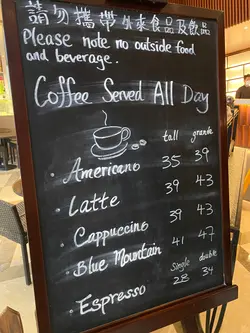 請勿攜帶外來食品及飲品
Please note no outside food
and beverage.
Coffee Served All Day
tall grande
Americano 35 39
Latte 39 43
Cappuccino 39 43
Blue Mountain 41 47
Single double
Espresso 28 34